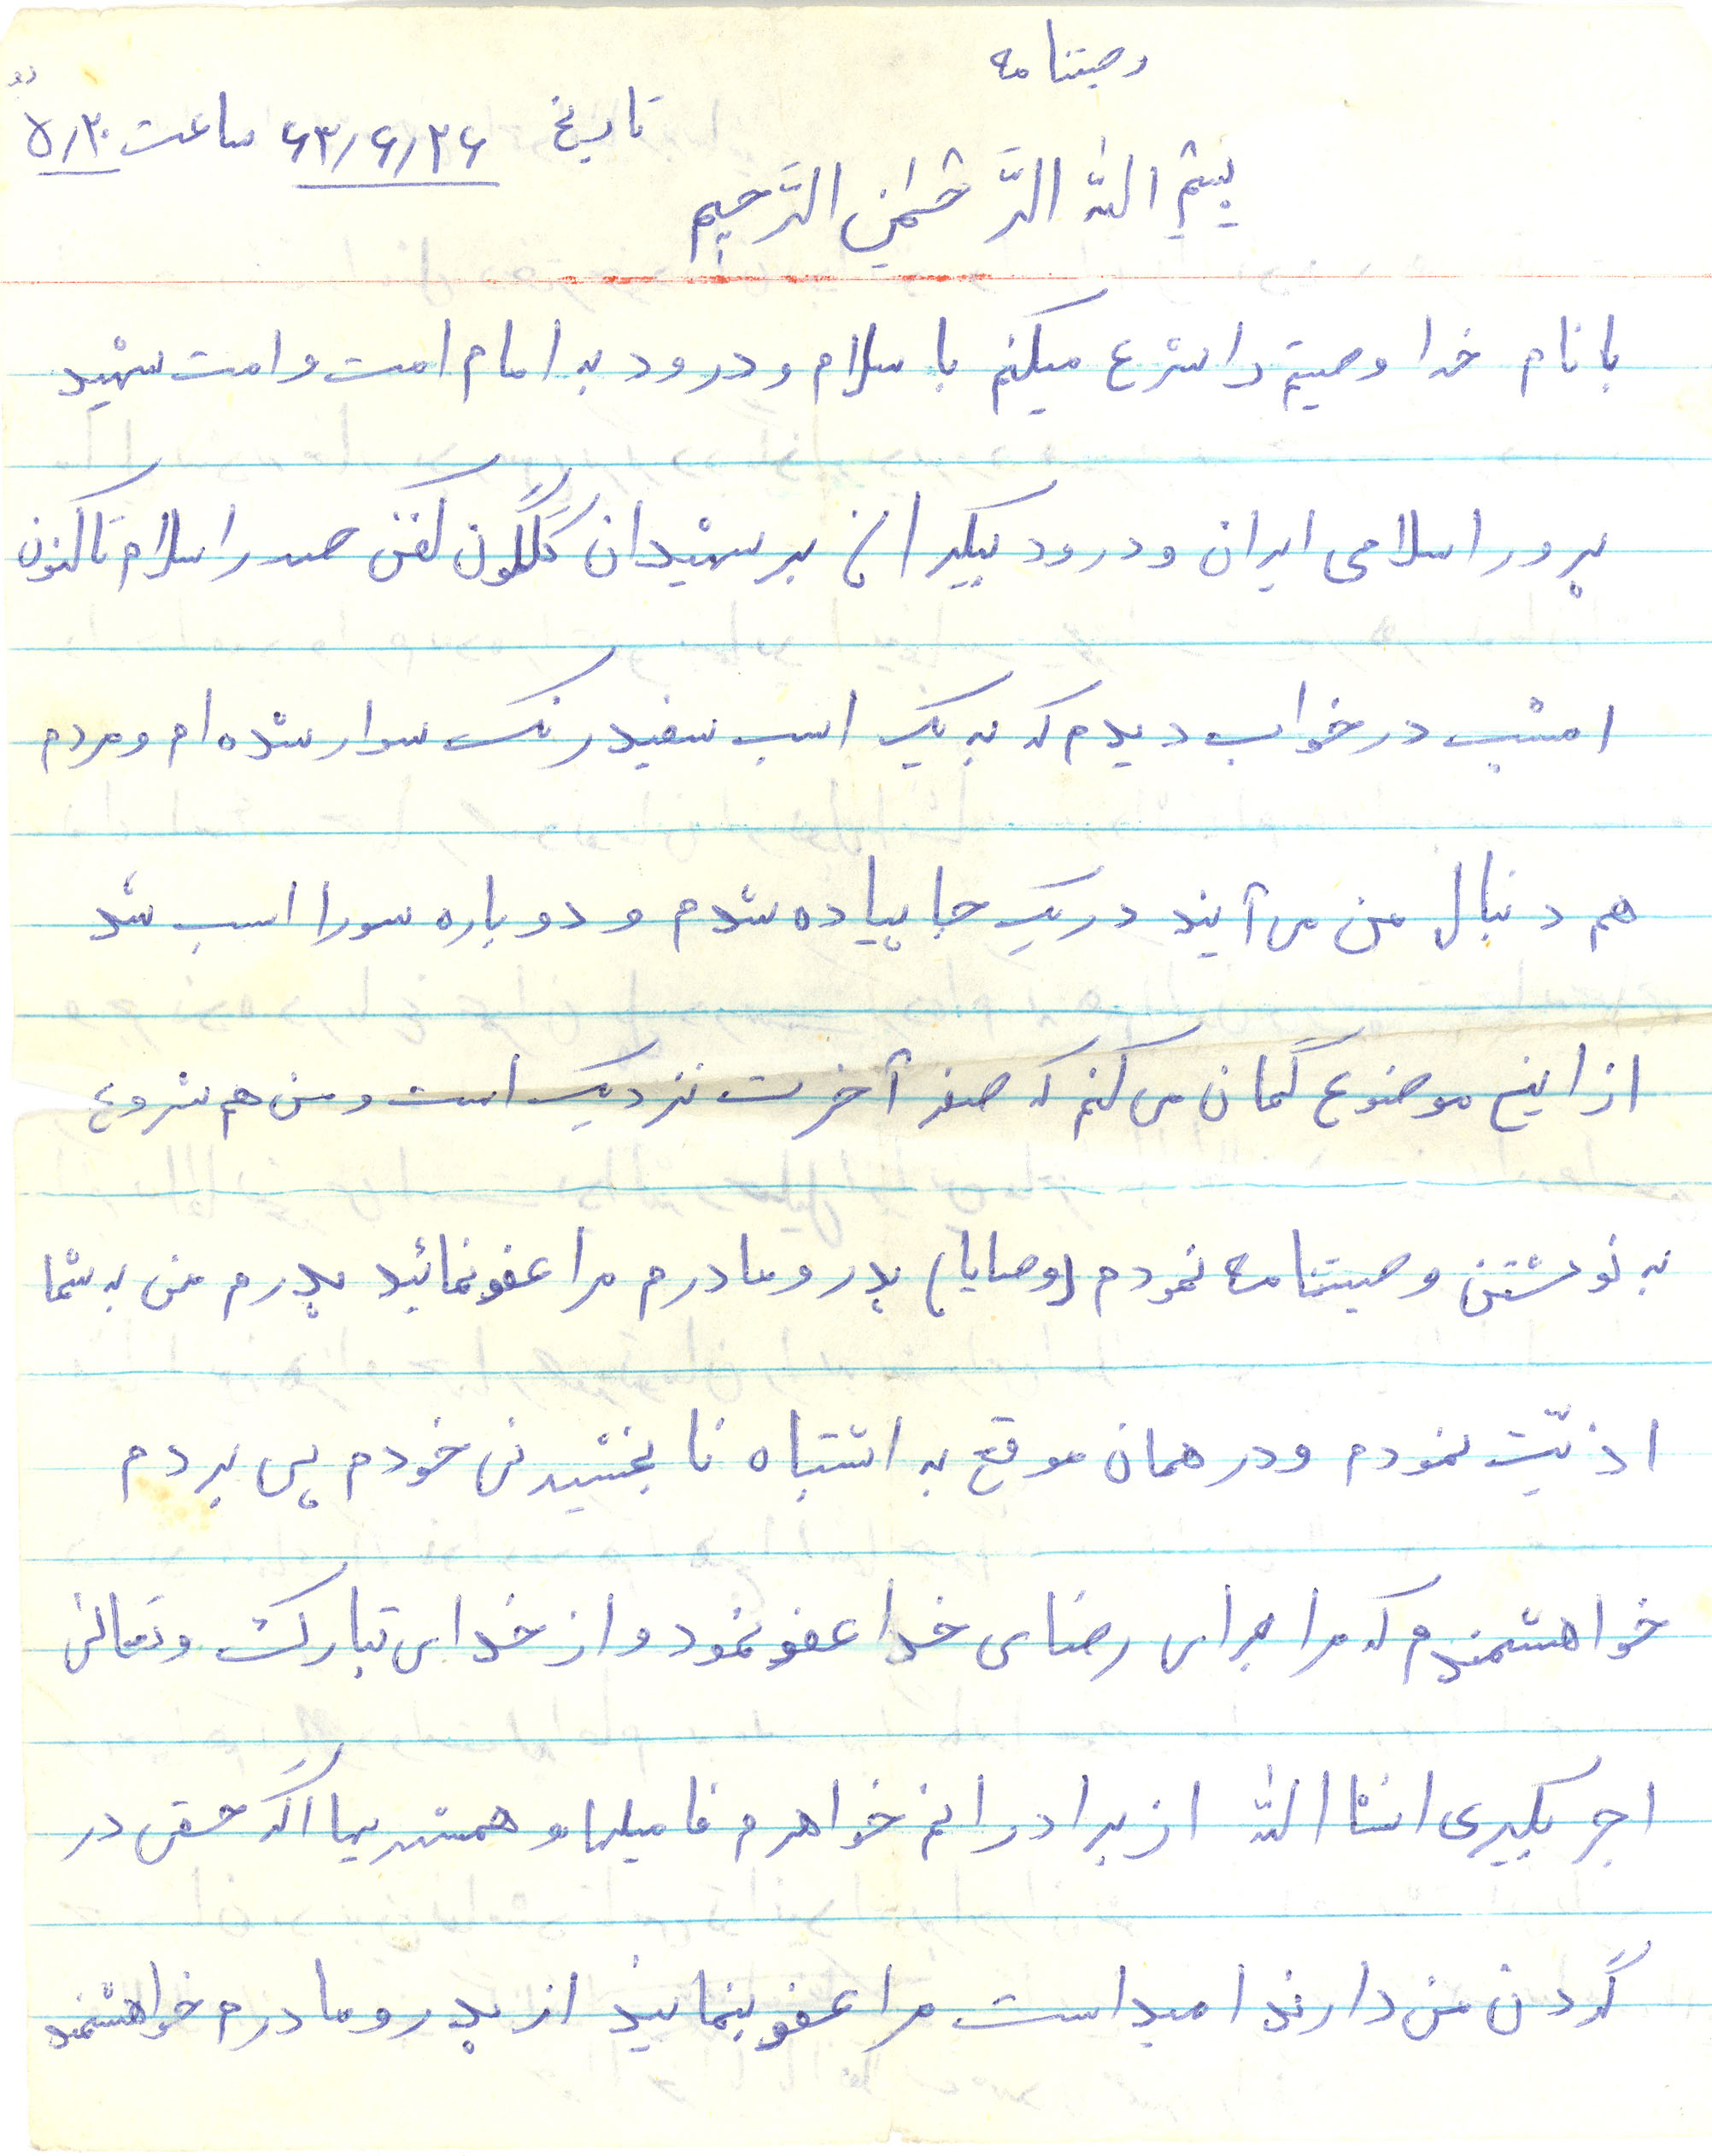 وصیتنامه
تاریخ ۶۳/۶/۲۶ ساعت ۵/۳۰
بِسْمِ اللّه الرَّحْمٰنِ الرَّحیمِ
با نام خدا وصیتم را شرع میکنم با سلام و درود به امام امت و امت شهید
پرور اسلامی ایران و درود بیکران بر شهیدان گلگون کفن صدر اسلام تاکنون
امشب در خواب دیدم که به یک اسب سفید رنگ سوار شده ام و مردم
هم دنبال من می آیند در یک جا پیاده شدم و دوباره سورا اسب شد
از این موضوع گمان می کنم که صفر آخرت نزدیک است و من هم شروع
به نوشتن وصیتنامه نمودم (وصایا) پدر و مادرم مرا عفو نمائید پدرم من به شما
اذیّت نمودم و در همان موقع به اشتباه نابخشیدنی خودم پی بردم
خواهشمندم که مرا برای رضای خدا عفو نمود و از خدای تبارک وتعالی
اجر بگیری انشا اللّه از برادرانم خواهرم فامیلها و همشهریها اگر حقی در
گردن من دارند امید است مرا عفو بنمایند از پدر و مادرم خواهشمند